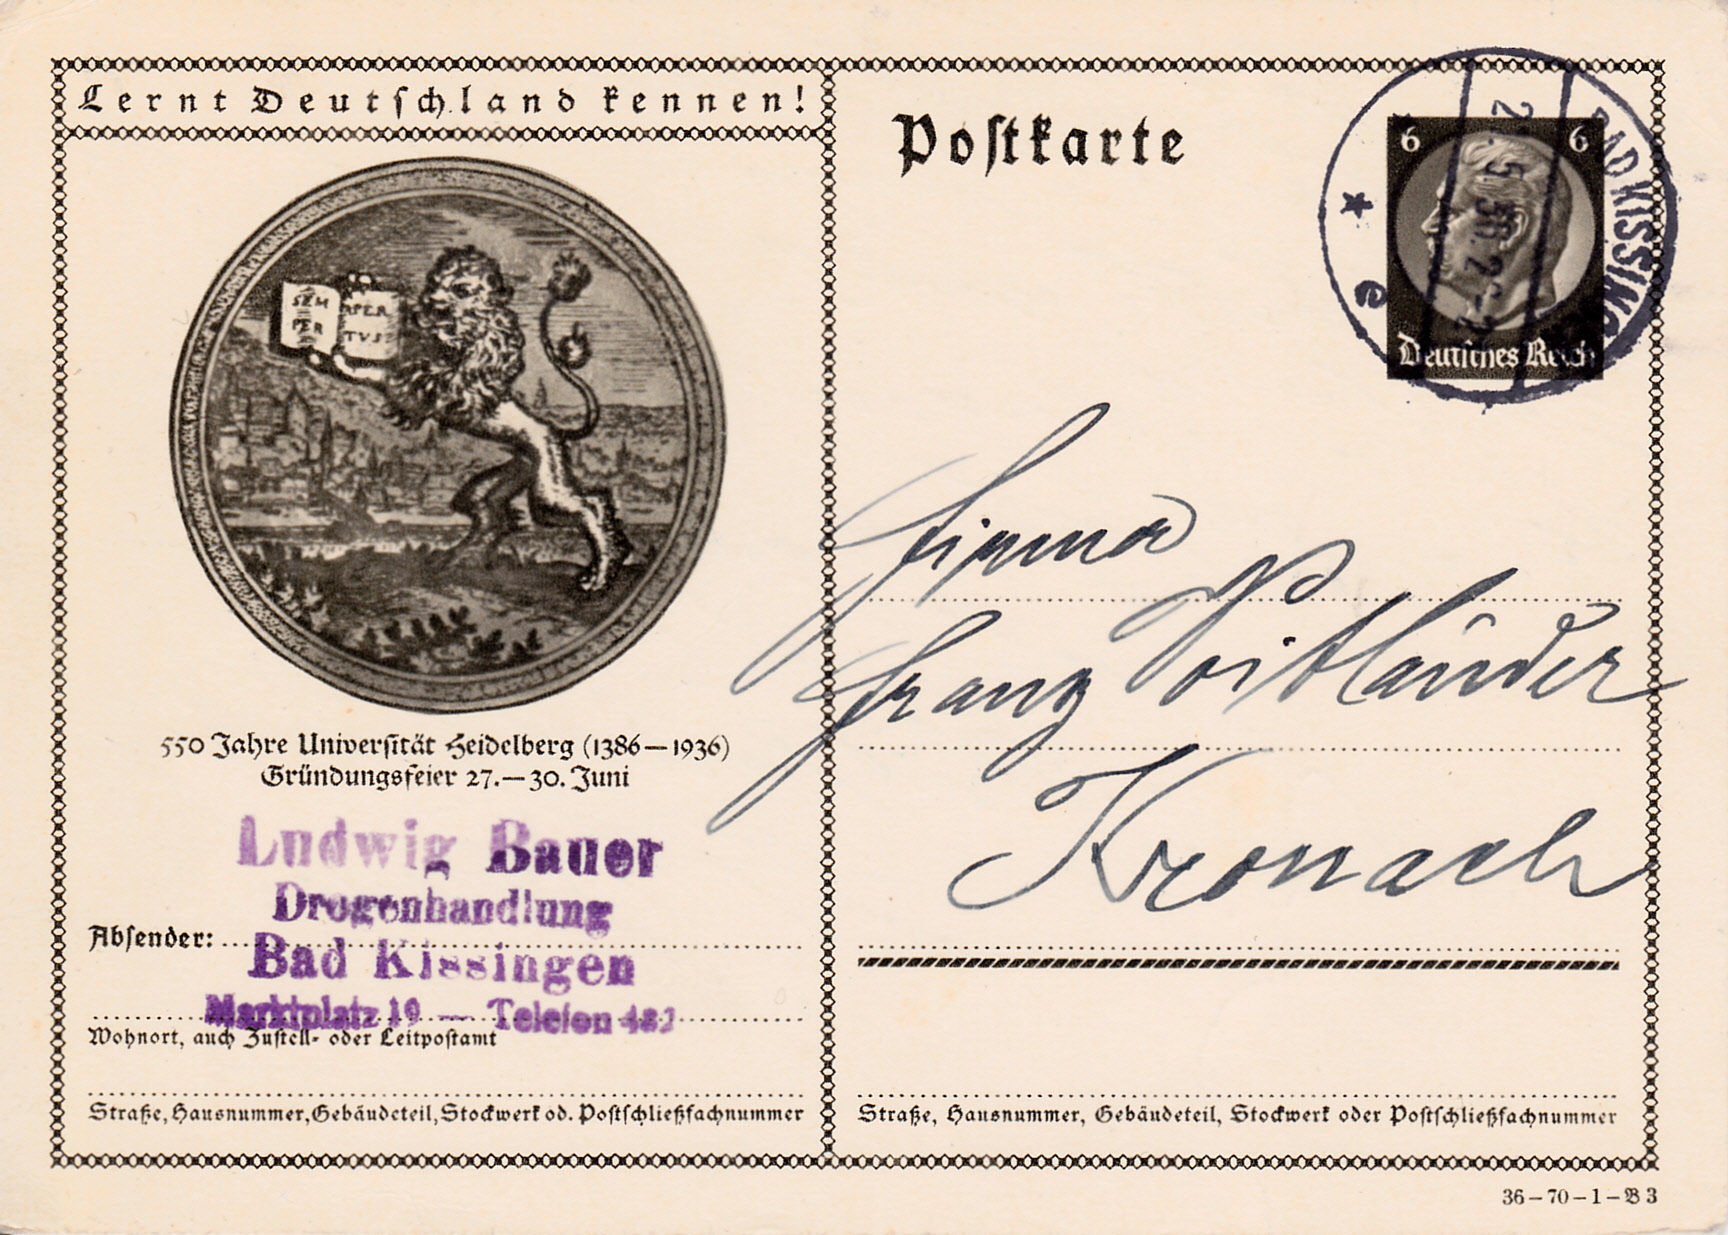 Lernt Deutschland kennen!
SEM APER
PER TVS
550 Jahre Universität Heidelberg (1386—1936)
Gründungsfeier 27.—30. Juni
Ludwig Bauer
Drogenhandlung
Absender:
Bad Kissingen
Marktplatz 19 — Telefon 482
Wohnort, auch Zustell- oder Leitpostamt
Straße, Hausnummer, Gebäudeteil, Stockwerk od. Postschließfachnummer
Postkarte
6 6
Deutsches Reich
BAD KISSINGEN
e
Firma
Franz Voitländer
Kronach
Straße, Hausnummer, Gebäudeteil, Stockwerk oder Postschließfachnummer
36–70–1–B 3